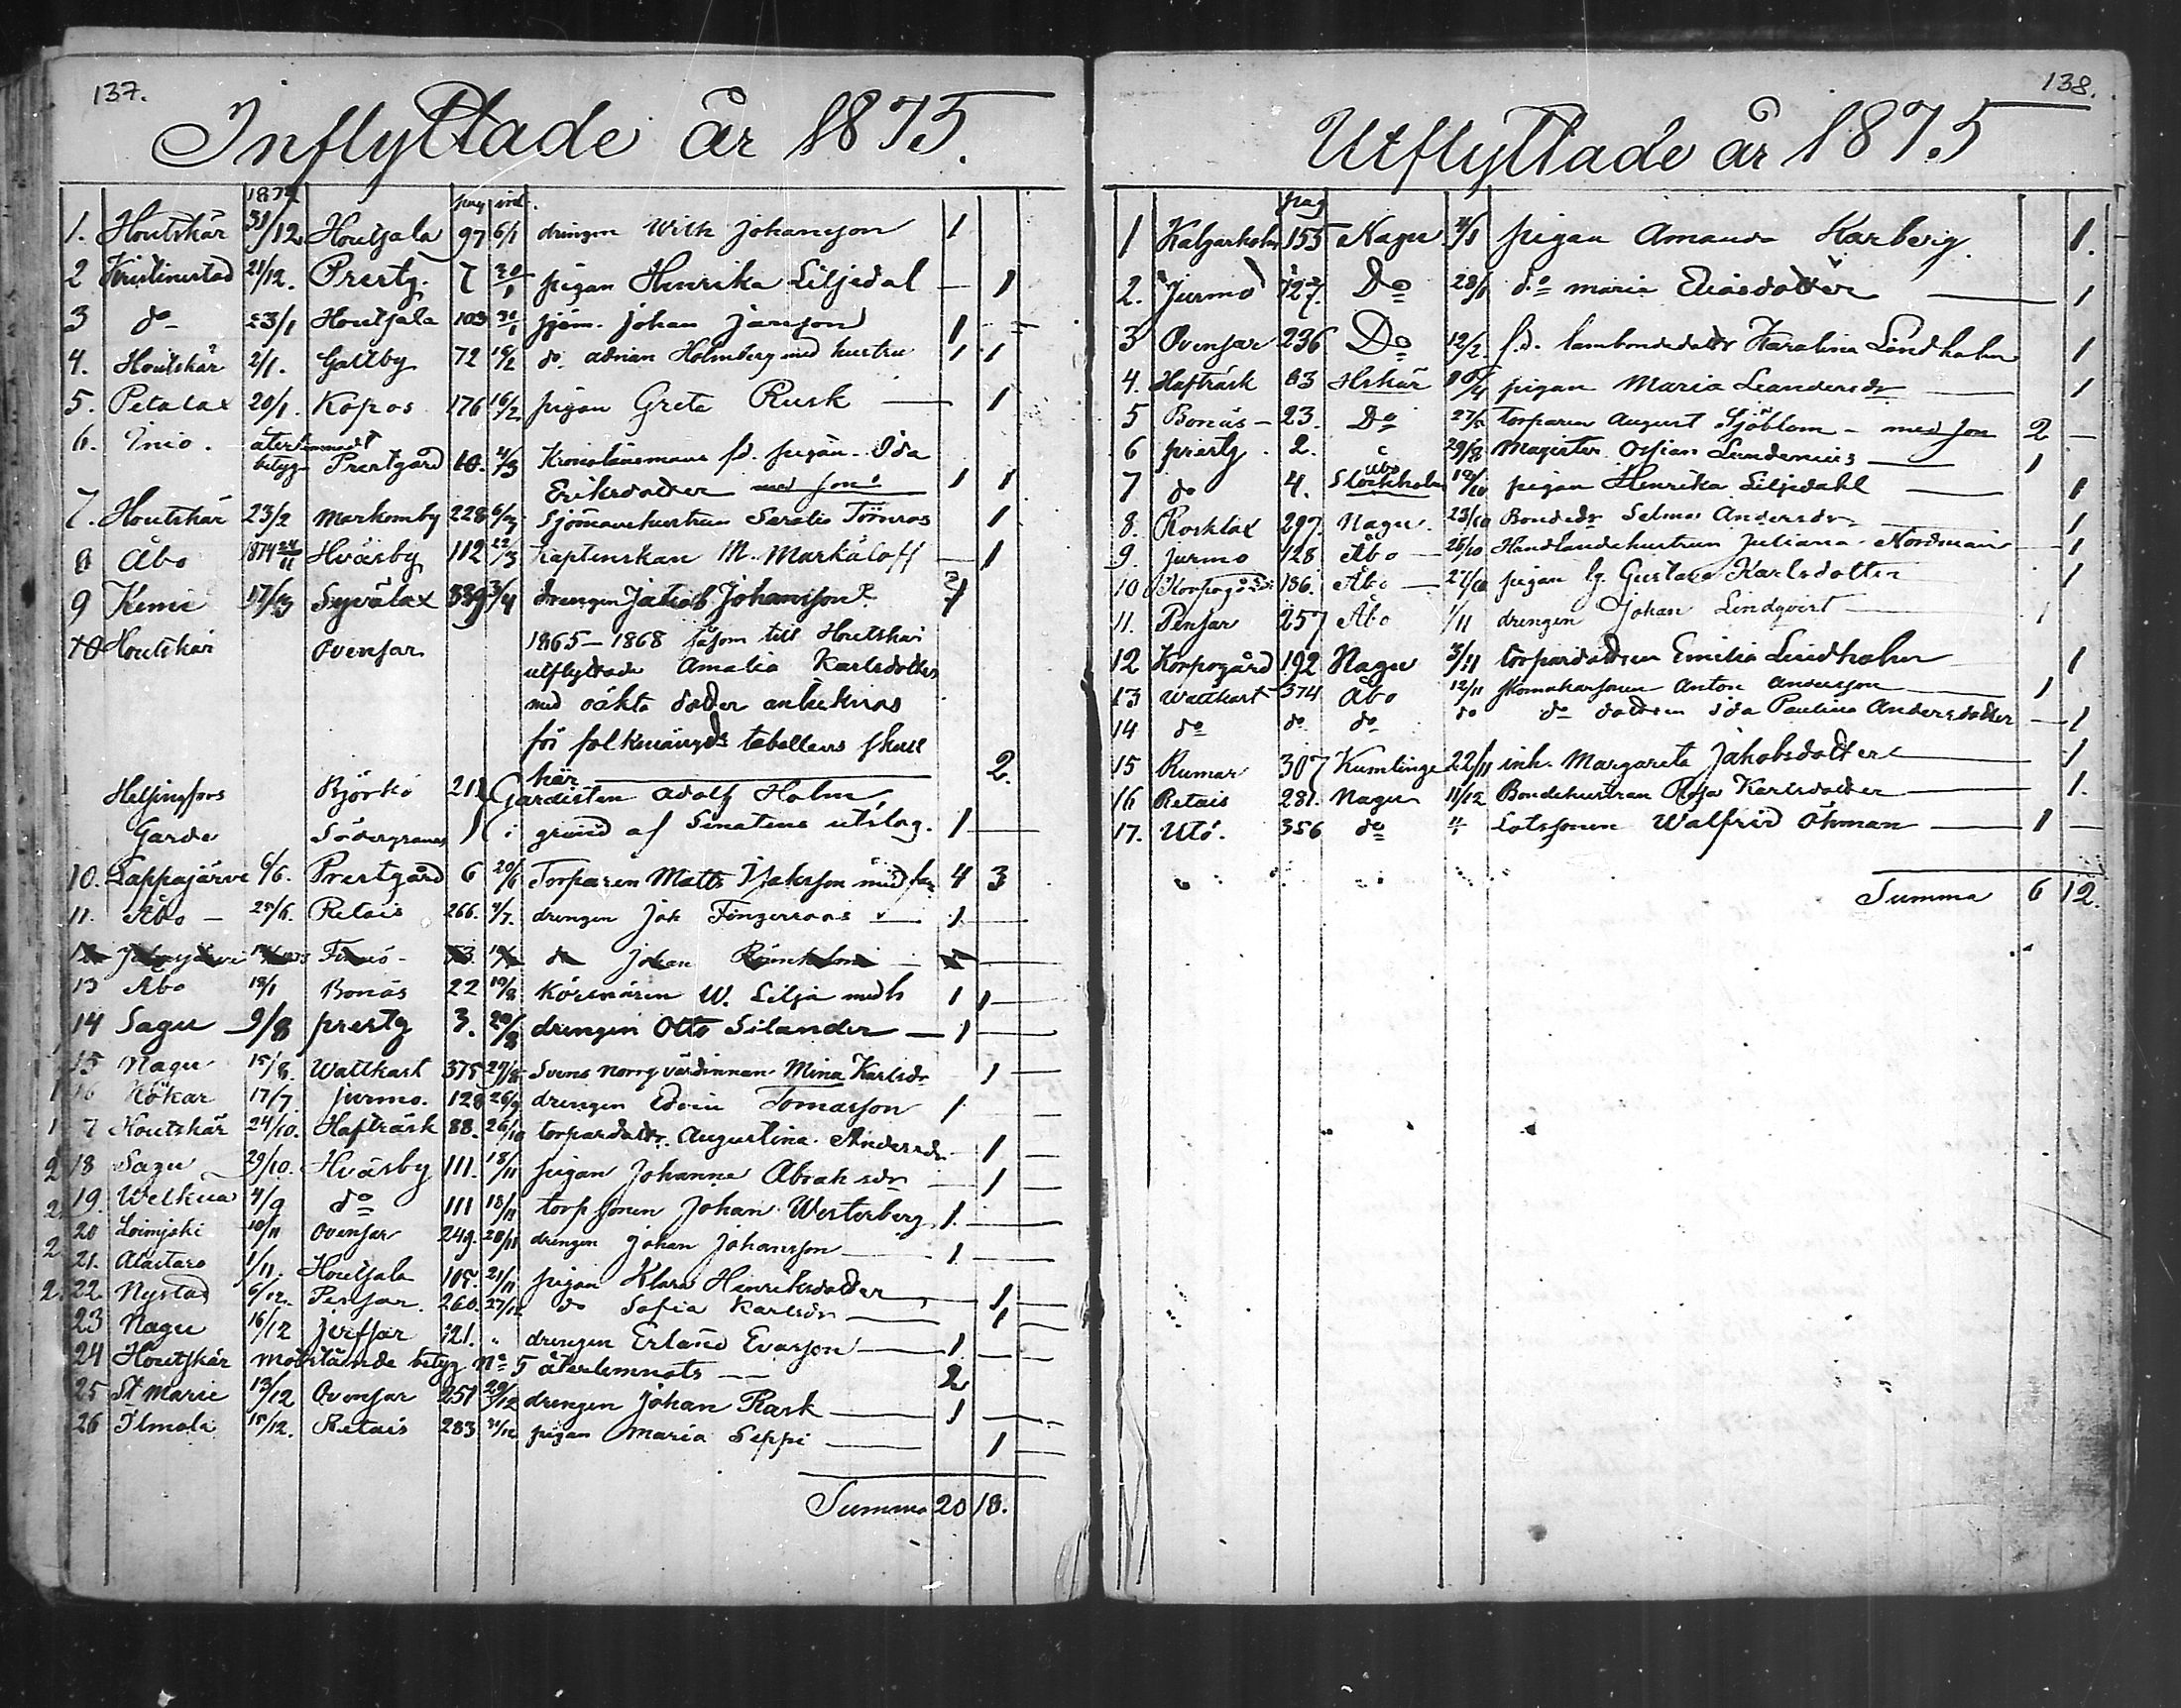 137.
Inflyttade år 1875.
1874 pag inl.
1. Houtskär 31/12 Houtsala 97 6/1 drengen Wilh Johansson 1
2 Kristinestad 21/12. Prestg. 7 30/1 pigan Henrika Liljedal — 1
3 do 23/1 Houtsala 103 31/1 sjöm. Johan Jansson 1
4. Houtskär 2/1. Galtby 72 10/2 do adrian Holmberg med hustru 1 1
5. Petalax 20/1. Kopos 176 16/2 pigan Greta Rusk — 1
6. Inio. återlemnadt
betyg Prestgård 10. 4/3 Kronolänsmans fd. pigan Ida
Eriksdotter med son 1 1
7. Houtskär 23/2 Markomby 228 6/3 Sjömanshustrun Seralia Tönroos 1
8 Åbo 1874 24/11 Hväsby 112 22/3 kaptenskan M. Markäloff — 1
9 Kemi 17/3 Syvälax 339 3/4 drengen Jakob Johansson 1
10 Houtskär Ovensar 1865–1868 såsom till Houtskär
utflyttade Amalia Karlsdotter
med oäkta dotter antecknas
för folkmängds tabellens skull
här — 2.
Helsingfors Björkö 211 Gardisten Adolf Holm
Garde Södergranas i grund af Senatens utslag. 1 —
10. Lappajärvi 6/6. Prestgård 6 20/6 Torparen Matts Isaksson med fam 4 3
11. Åbo — 25/6. Retais 266. 4/7. drengen Joh Fingerroos — 1 —
do Johan
13 Åbo 18/1 Bonäs 22 19/8 Körsnären W. Lilja med h 1 1 —
14 Sagu — 9/8 prestg 3. 20/8 drengen Otto Silander — 1 —
15 Nagu 15/8. Wattkast 375 29/8 Svens Norrg värdinnan Mina Karlsdr 1 —
16 Kökar 17/7 Jurmo. 128 26/9 drengen Edvin Tomasson 1 —
17 Houtskär 24/10. Hafträsk 88. 26/10 torpardottr. Augustina Andersdr 1 —
18 Sagu 29/10. Hväsby 111. 18/11 pigan Johanna Abrahsdr — 1 —
19. Welkua 4/9 do 111 18/11 torpsonen Johan Westerberg 1. —
20 Loimjoki 10/11 Ovensar 249. 28/11 drengen Johan Johansson — 1 —
21. Alastaro 1/11. Houtsala 105. 21/11 pigan Klara Henriksdotter — 1 —
22. Nystad 6/12. Pensar. 260. 27/12 do Sofia Karlsdr — 1 —
23 Nagu 16/12 Jerfsär 121. " drengen Erland Evasson — 1 —
24 Houtskär motstående betyg No 5 återlemnats — 2
25 St Marie 13/12 Ovensar 251 29/12 drengen Johan Rask — 1 —
26 Ilmola 15/12. Retais 283 31/12 pigan Maria Seppi — 1 —
Summa 20 18.
138.
Utflyttade år 1875
pag
1 Kalgarholm 155 Nagu 4/1 pigan Amanda Karberg. 1.
2. Jurmo 127. Do 28/1 do maria Eliasdotter — 1
3 Ovensar 236 Do 12/2. f.d. lambondedottr Karolina Lindholm 1
4. Hafträsk 83 Hskär 10/4 pigan Maria Leandersdr — 1
5 Bonäs — 23. Do 27/5 torparen August Sjöblom — med son 2 —
6 prestg. 2. 29/8 Magister Ossian Lundenius — 1
7 do 4. Stockholm 10/10 pigan Henrika Liljedahl — 1
8. Rosklax 297. Nagu. 23/10 Bondedr Selma Andersdr — 1
9. Jurmo 128 Åbo — 26/10 Handlandehustrun Juliana Nordman — 1
10 Korpogård 186. Åbo — 27/10 pigan Gustava Karlsdotter — 1
11. Pensar 257 Åbo 1/11 drengen Johan Lindqvist — 1
12 Korpogård 192 Nagu 3/11 torpardottren Emilia Lindholm 1
13 Wattkast 374 Åbo 12/11 skomakarsonen Anton Andersson — 1
14 do do do do do dottren Ida Paulina Andersdotter — 1
15 Rumar 307 Kumlinge 22/11 inh. Margareta Jakobsdotter — 1
16 Retais 281. Nagu 11/12 Bondehustran Rosa Karlsdotter — 1.
17. Utö. 356 do " Lotssonen Walfrid Öhman — 1 —
Summa 6 12.